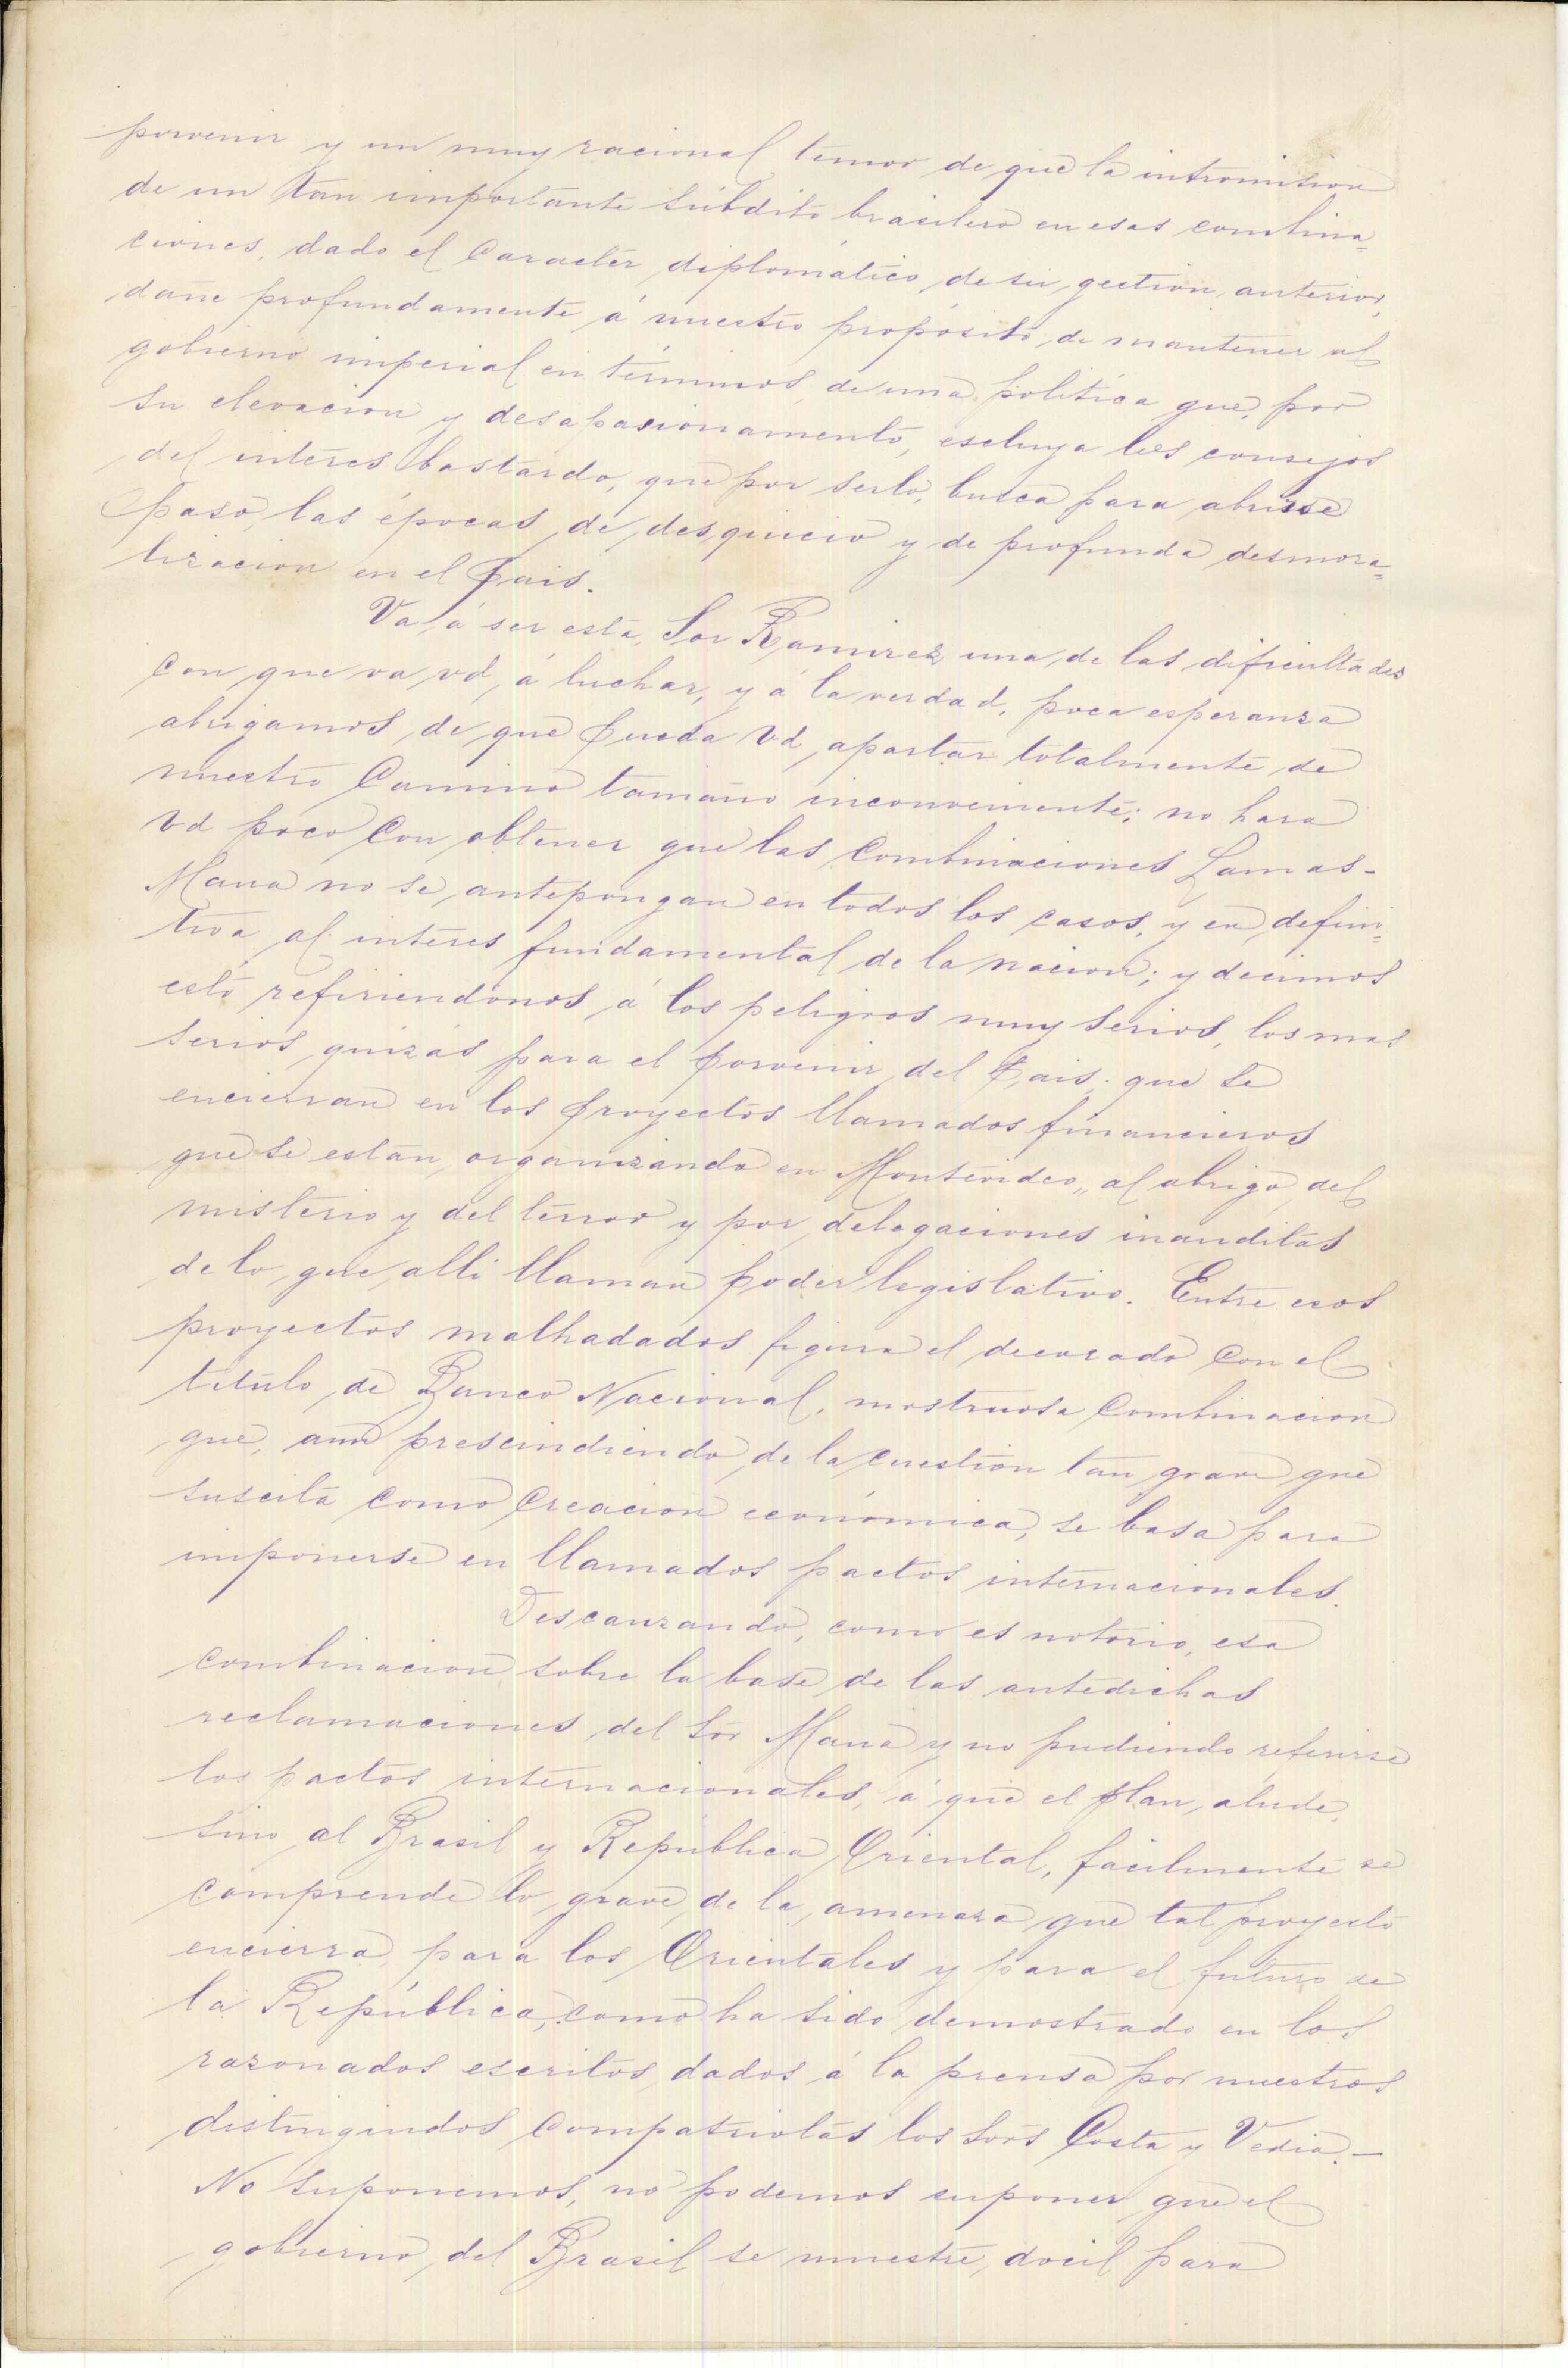 porvenir y un muy racional temor de que la intromision
de un tan importante súbdito brasilero en esas combina=
ciones, dado el caracter diplomático de su gestion anterior,
dañe profundamente á nuestro propósito de mantener al
gobierno imperial en términos de una política que, por
su elevacion y desapasionamento, escluya los consejos
del interes bastardo, que por serlo, busca para abrirse
paso, las épocas de desquicio y de profunda desmora=
lizacion en el Pais.
Va á ser esta, Sor Ramirez una de las dificultades
con que va vd, á luchar, y á la verdad, poca esperanza
abrigamos, de que pueda Vd, apartar totalmente de
nuestro Camino tamaño inconveniente; no hara
Vd poco con obtener que las combinaciones Lamas-
Maua no se antepongan en todos los casos, y en defini=
tiva al interes fundamental de la nacion; y decimos
esto refiriendonos á los peligros muy serios, los mas
serios quizás para el porvenir del Pais, que se
encierran en los proyectos llamados financieros
que se estan organizando en Montevideo, al abrigo del
misterio y del terror y por delegaciones inauditas
de lo que alli llaman poder legislativo. Entre esos
proyectos malhadados figura el decorado con el
titulo de Banco Nacional, mostruosa combinacion
que, aun prescindiendo de la cuestion tan grave que
suscita como creacion económica, se basa para
imponerse en llamados pactos internacionales.
Descanzando, como es notorio, esa
combinacion sobre la base de las antedichas
reclamaciones del Sor Mauá y no pudiendo referirse
los pactos internacionales, á que el plan alude,
sino al Brasil y República Oriental, facilmente se
comprende lo grave de la amenaza que tal proyecto
encierra para los Orientales y para el futuro de
la República, como ha sido demostrado en los
razonados escritos dados á la prensa por nuestros
distinguidos compatriotas los Sors Costa y Vedia.—
No suponemos, no podemos suponer que el
gobierno del Brasil se muestre, docil para